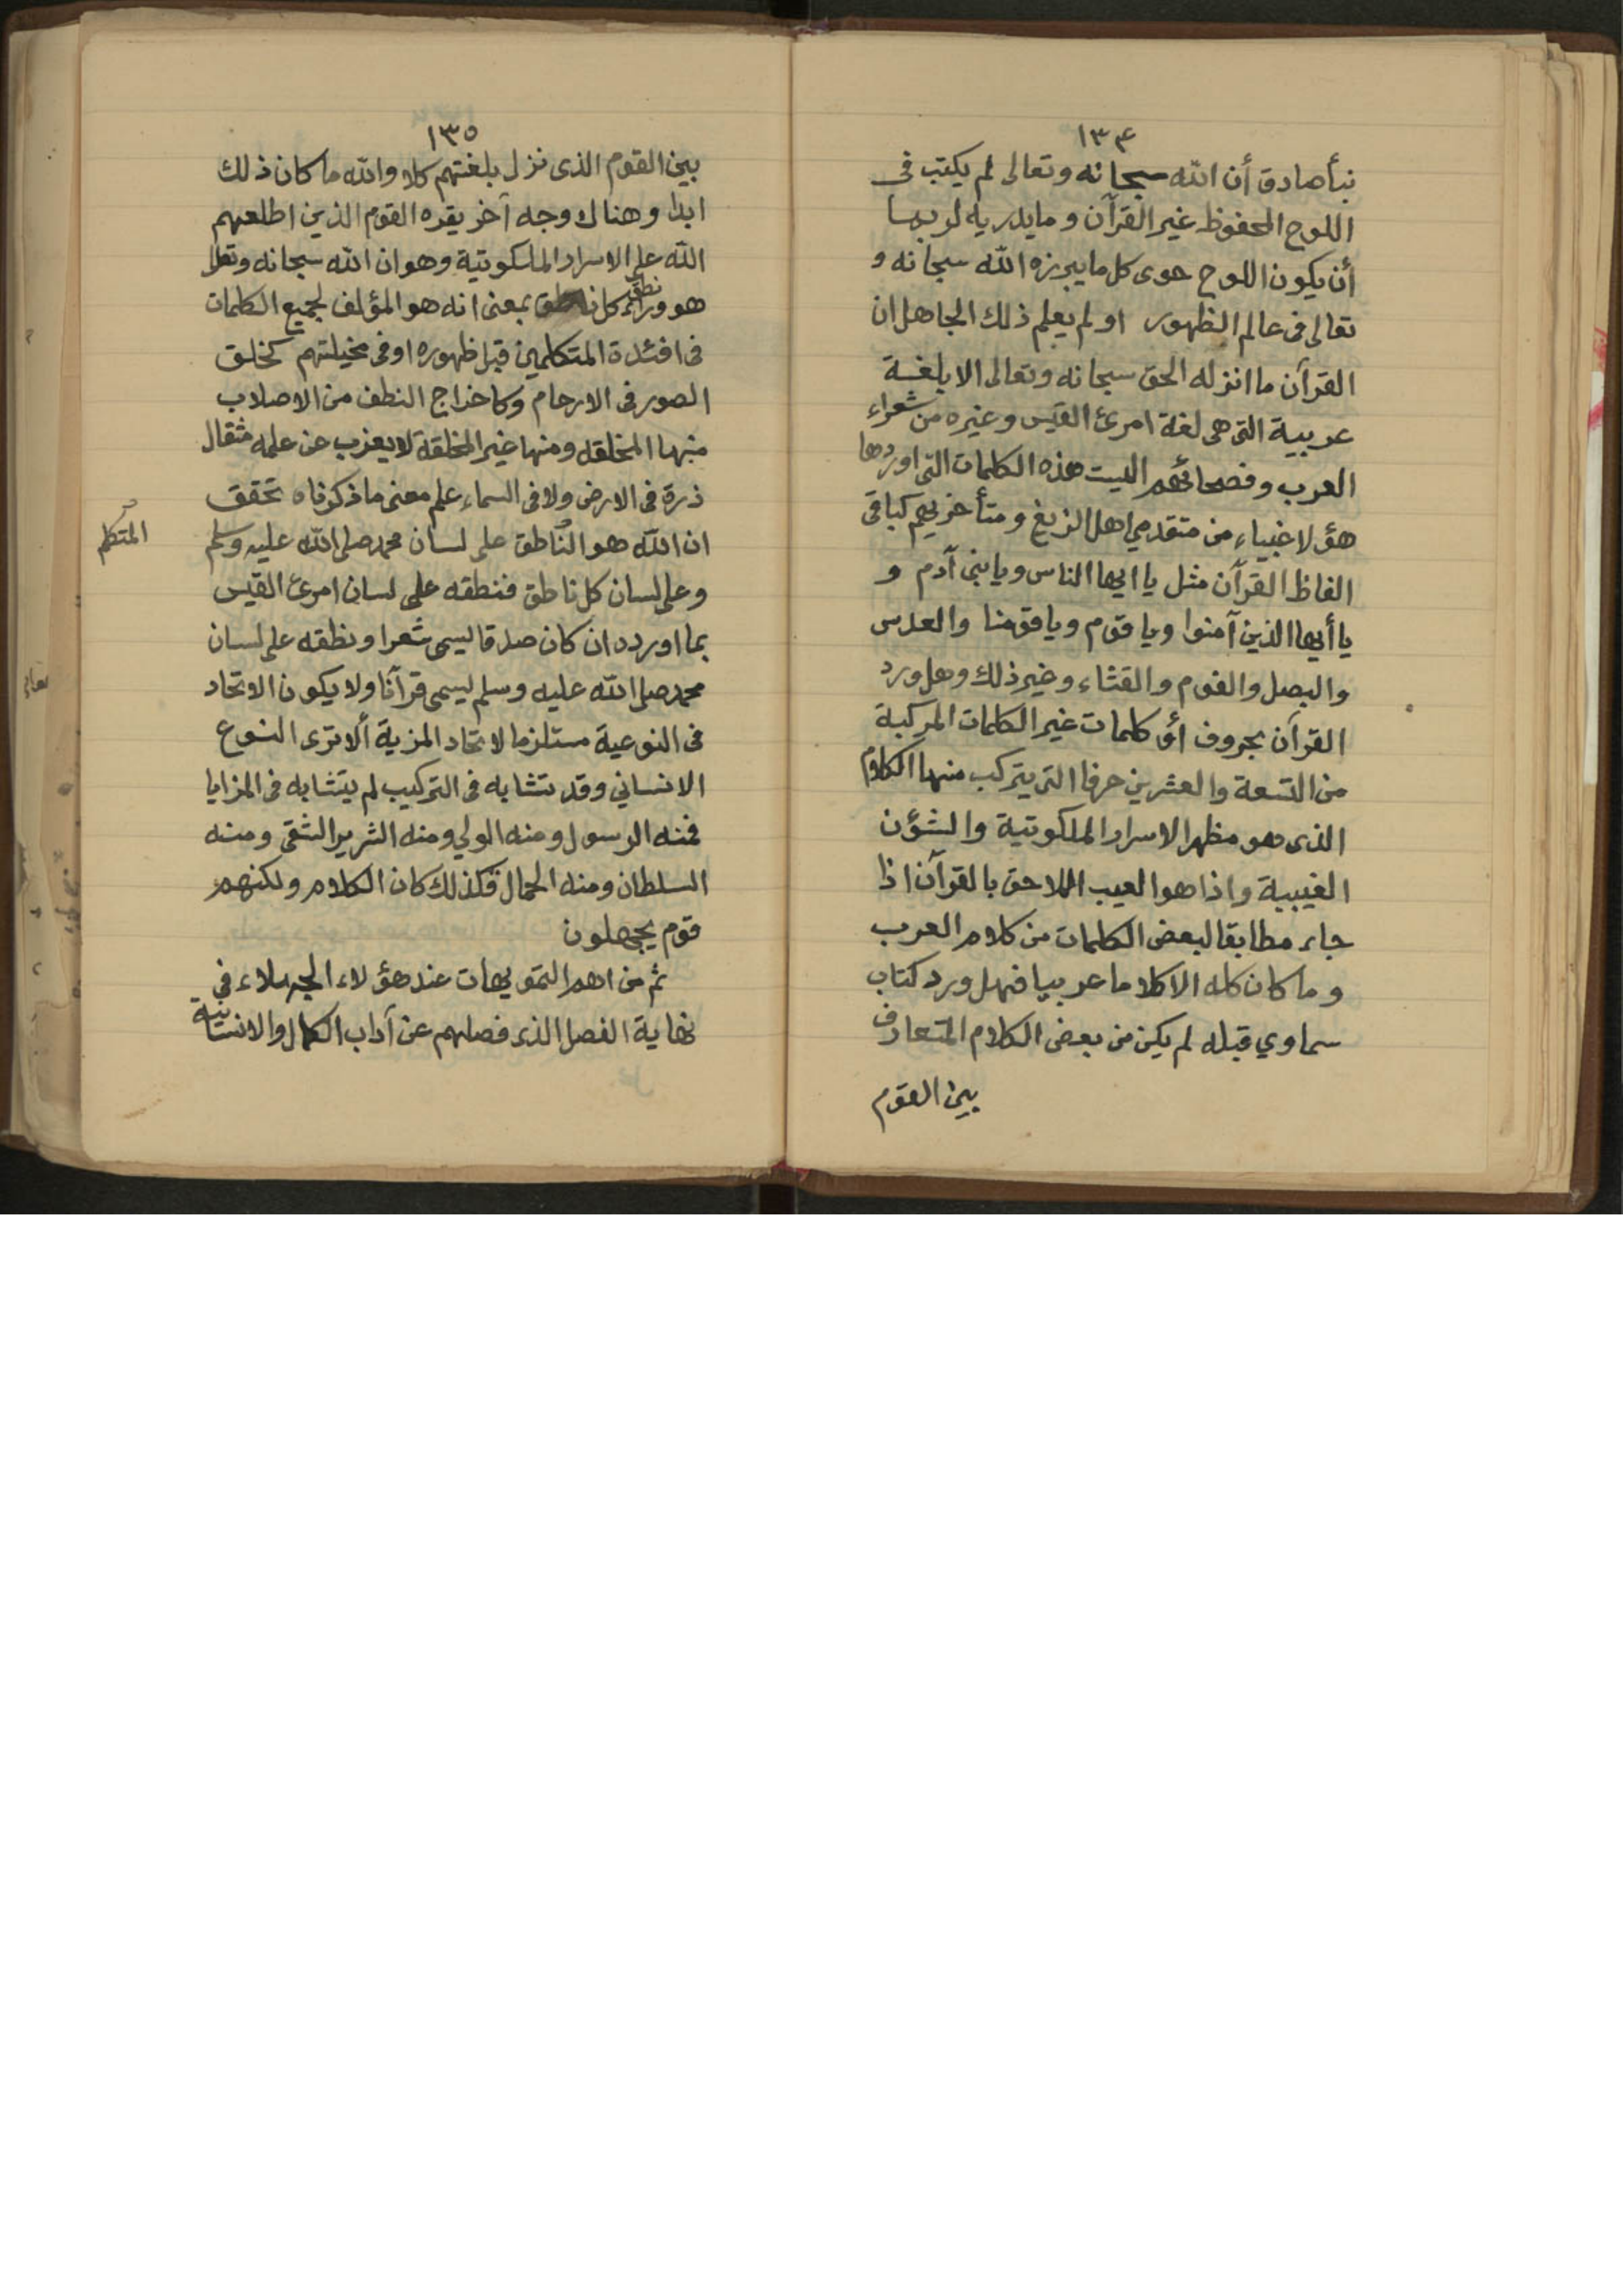 ١٣٤
نبأ صادق أن الله سبحانه وتعالى لم يكتب فى
اللوح المحفوظ غير القرآن وما يدريه لربما
أن يكون اللوح حوى كل ما يبرزه الله سبحانه و
تعالى فى عالم الظهور او لم يعلم ذلك الجاهل ان
القرآن ما انزله الحق سبحانه وتعالى الا بلغة
عربية التى هى لغة امرئ القيس وغيره من شعراء
العرب وفصحائهم اليست هذه الكلمات التى اوردها
هؤلاغبياء من متقدمي اهل الزيغ ومتأخريهم كباقى
الفاظ القرآن مثل يا ايها الناس ويا بنى آدم و
يا أيها الذين آمنوا ويا قوم ويا قومنا والعدس
والبصل والفوم والقثاء وغير ذلك وهل ورد
القرآن بحروف أو كلمات غير الكلمات المركبة
من التسعة والعشرين حرفا التى يتركب منها الكلام
الذى هو مظهر الاسرار الملكوتية والشؤن
الغيبية واذا هو العيب اللاحق بالقرآن اذا
جاء مطابقا لبعض الكلمات من كلام العرب
وما كان كله الا كلاما عربيا فهل ورد كتاب
سماوي قبله لم يكن من بعض الكلام المتعارف
بين القوم
١٣٥
بين القوم الذى نزل بلغتهم كلا والله ما كان ذلك
ابدا وهناك وجه آخر يقره القوم الذين اطلعهم
الله على الاسرار الملكوتية وهو ان الله سبحانه وتعالى
هو وراء نطق كل ناطق بمعنى انه هو المؤلف لجميع الكلمات
فى افئدة المتكلمين قبل ظهوره او فى مخيلتهم كخلق
الصور فى الارحام وكاخراج النطف من الاصلاب
منها المخلقه ومنها غير المخلقة لا يعزب عن علمه مثقال
ذرة فى الارض ولا فى السماء على معنى ما ذكرناه تحقق
ان الله هو الناطق على لسان محمد صلى الله عليه وسلم
المتكلم
وعلى لسان كل ناطق فنطقه على لسان امرئ القيس
بما اورده ان كان صدقا ليسمى شعرا ونطقه على لسان
محمد صلى الله عليه وسلم ليسمى قرآنا ولا يكون الاتحاد
فى النوعية مستلزما لاتحاد المزية ألا ترى النوع
الانساني وقد تشابه فى التركيب لم يتشابه فى المزايا
فمنه الرسول ومنه الولي ومنه الشرير الشقى ومنه
السلطان ومنه الحمال فكذلك كان الكلام ولكنهم
قوم يجهلون
ثم من اهم التمويهات عند هؤلاء الجهلاء في
نهاية الفصل الذى فصلهم عن آداب الكمال والانسانية